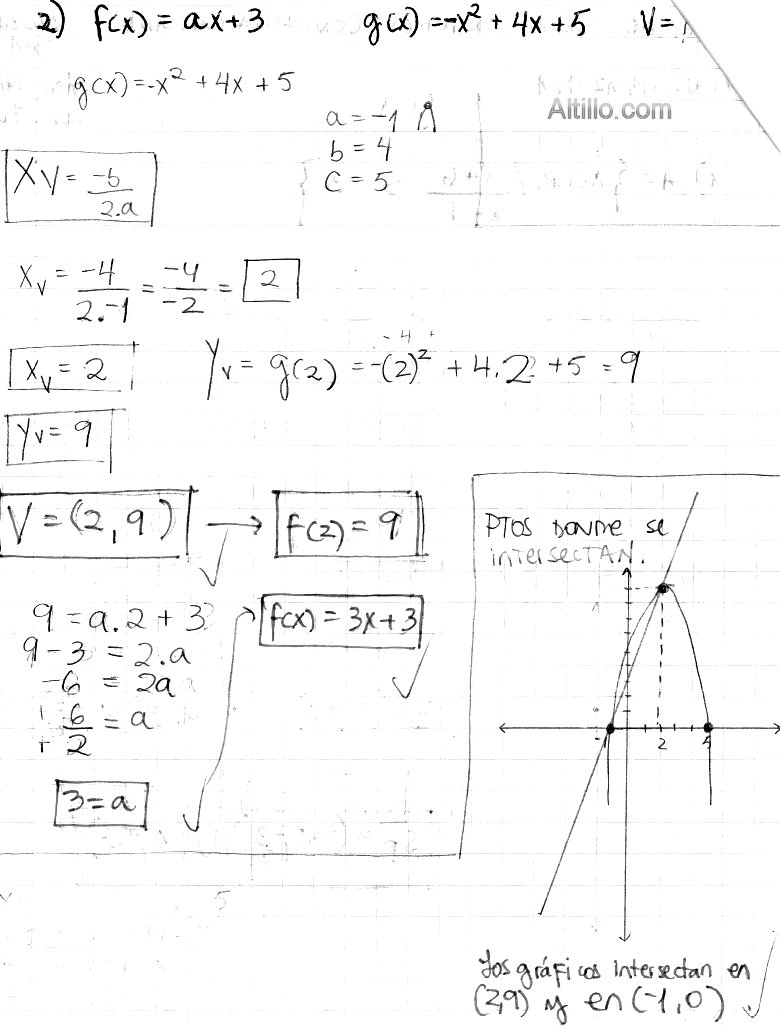 2) f(x) = ax+3 g(x) = -x² + 4x + 5 V=
g(x) = -x² + 4x + 5
Altillo.com
a = -1
b = 4
c = 5
Xv = -b/2.a
xv = -4/2.-1 = -4/-2 = 2
-4 +
xv = 2 yv = g(2) = -(2)² + 4.2 + 5 = 9
yv = 9
V = (2,9) → f(2) = 9
PTOS DONDE SE
INTERSECTAN.
9 = a.2 + 3
f(x) = 3x+3
9 - 3 = 2.a
-6 = 2a
+6/+2 = a
3 = a
2
5
Los gráficos intersectan en
(2,9) y en (-1,0)